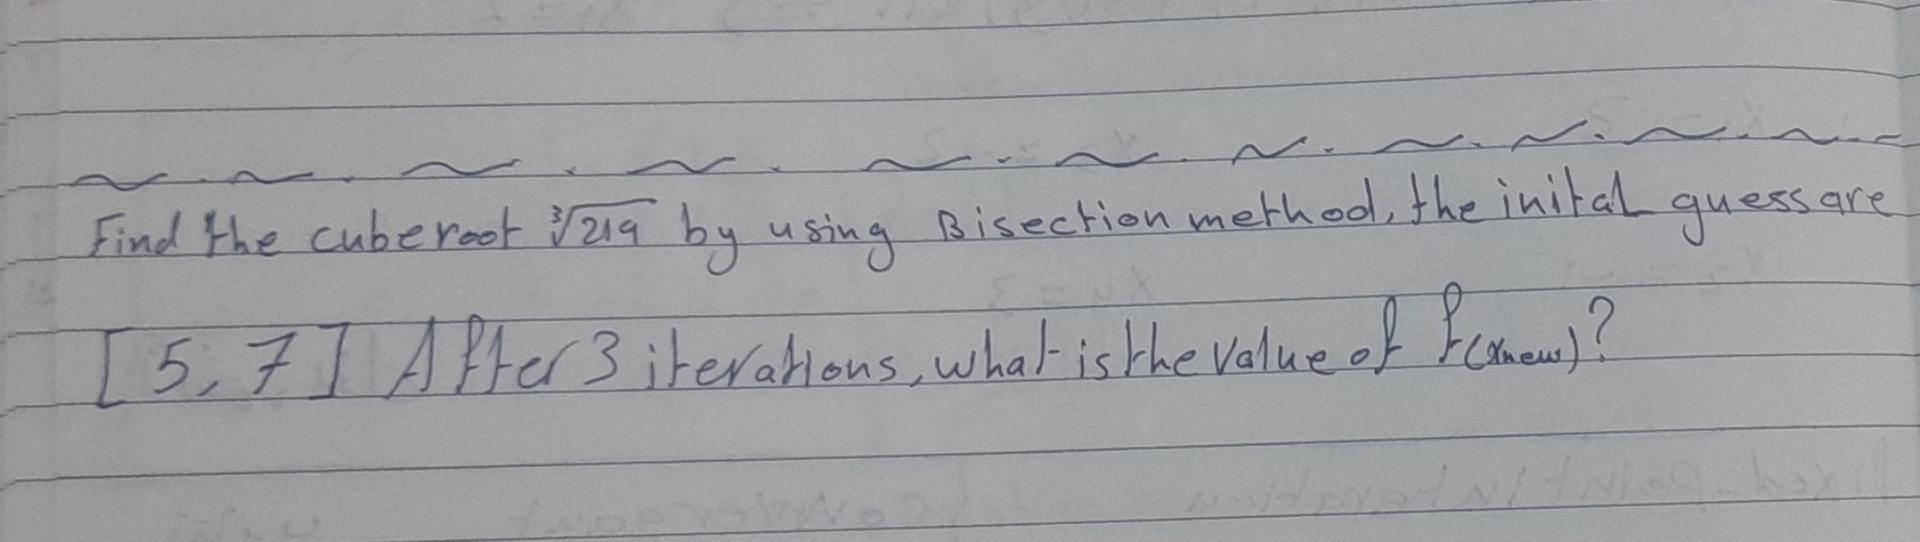 Find the cuberoot ∛219 by using Bisection method, the inital guess are
[5,7] After 3 iterations, what is the value of f(xnew)?